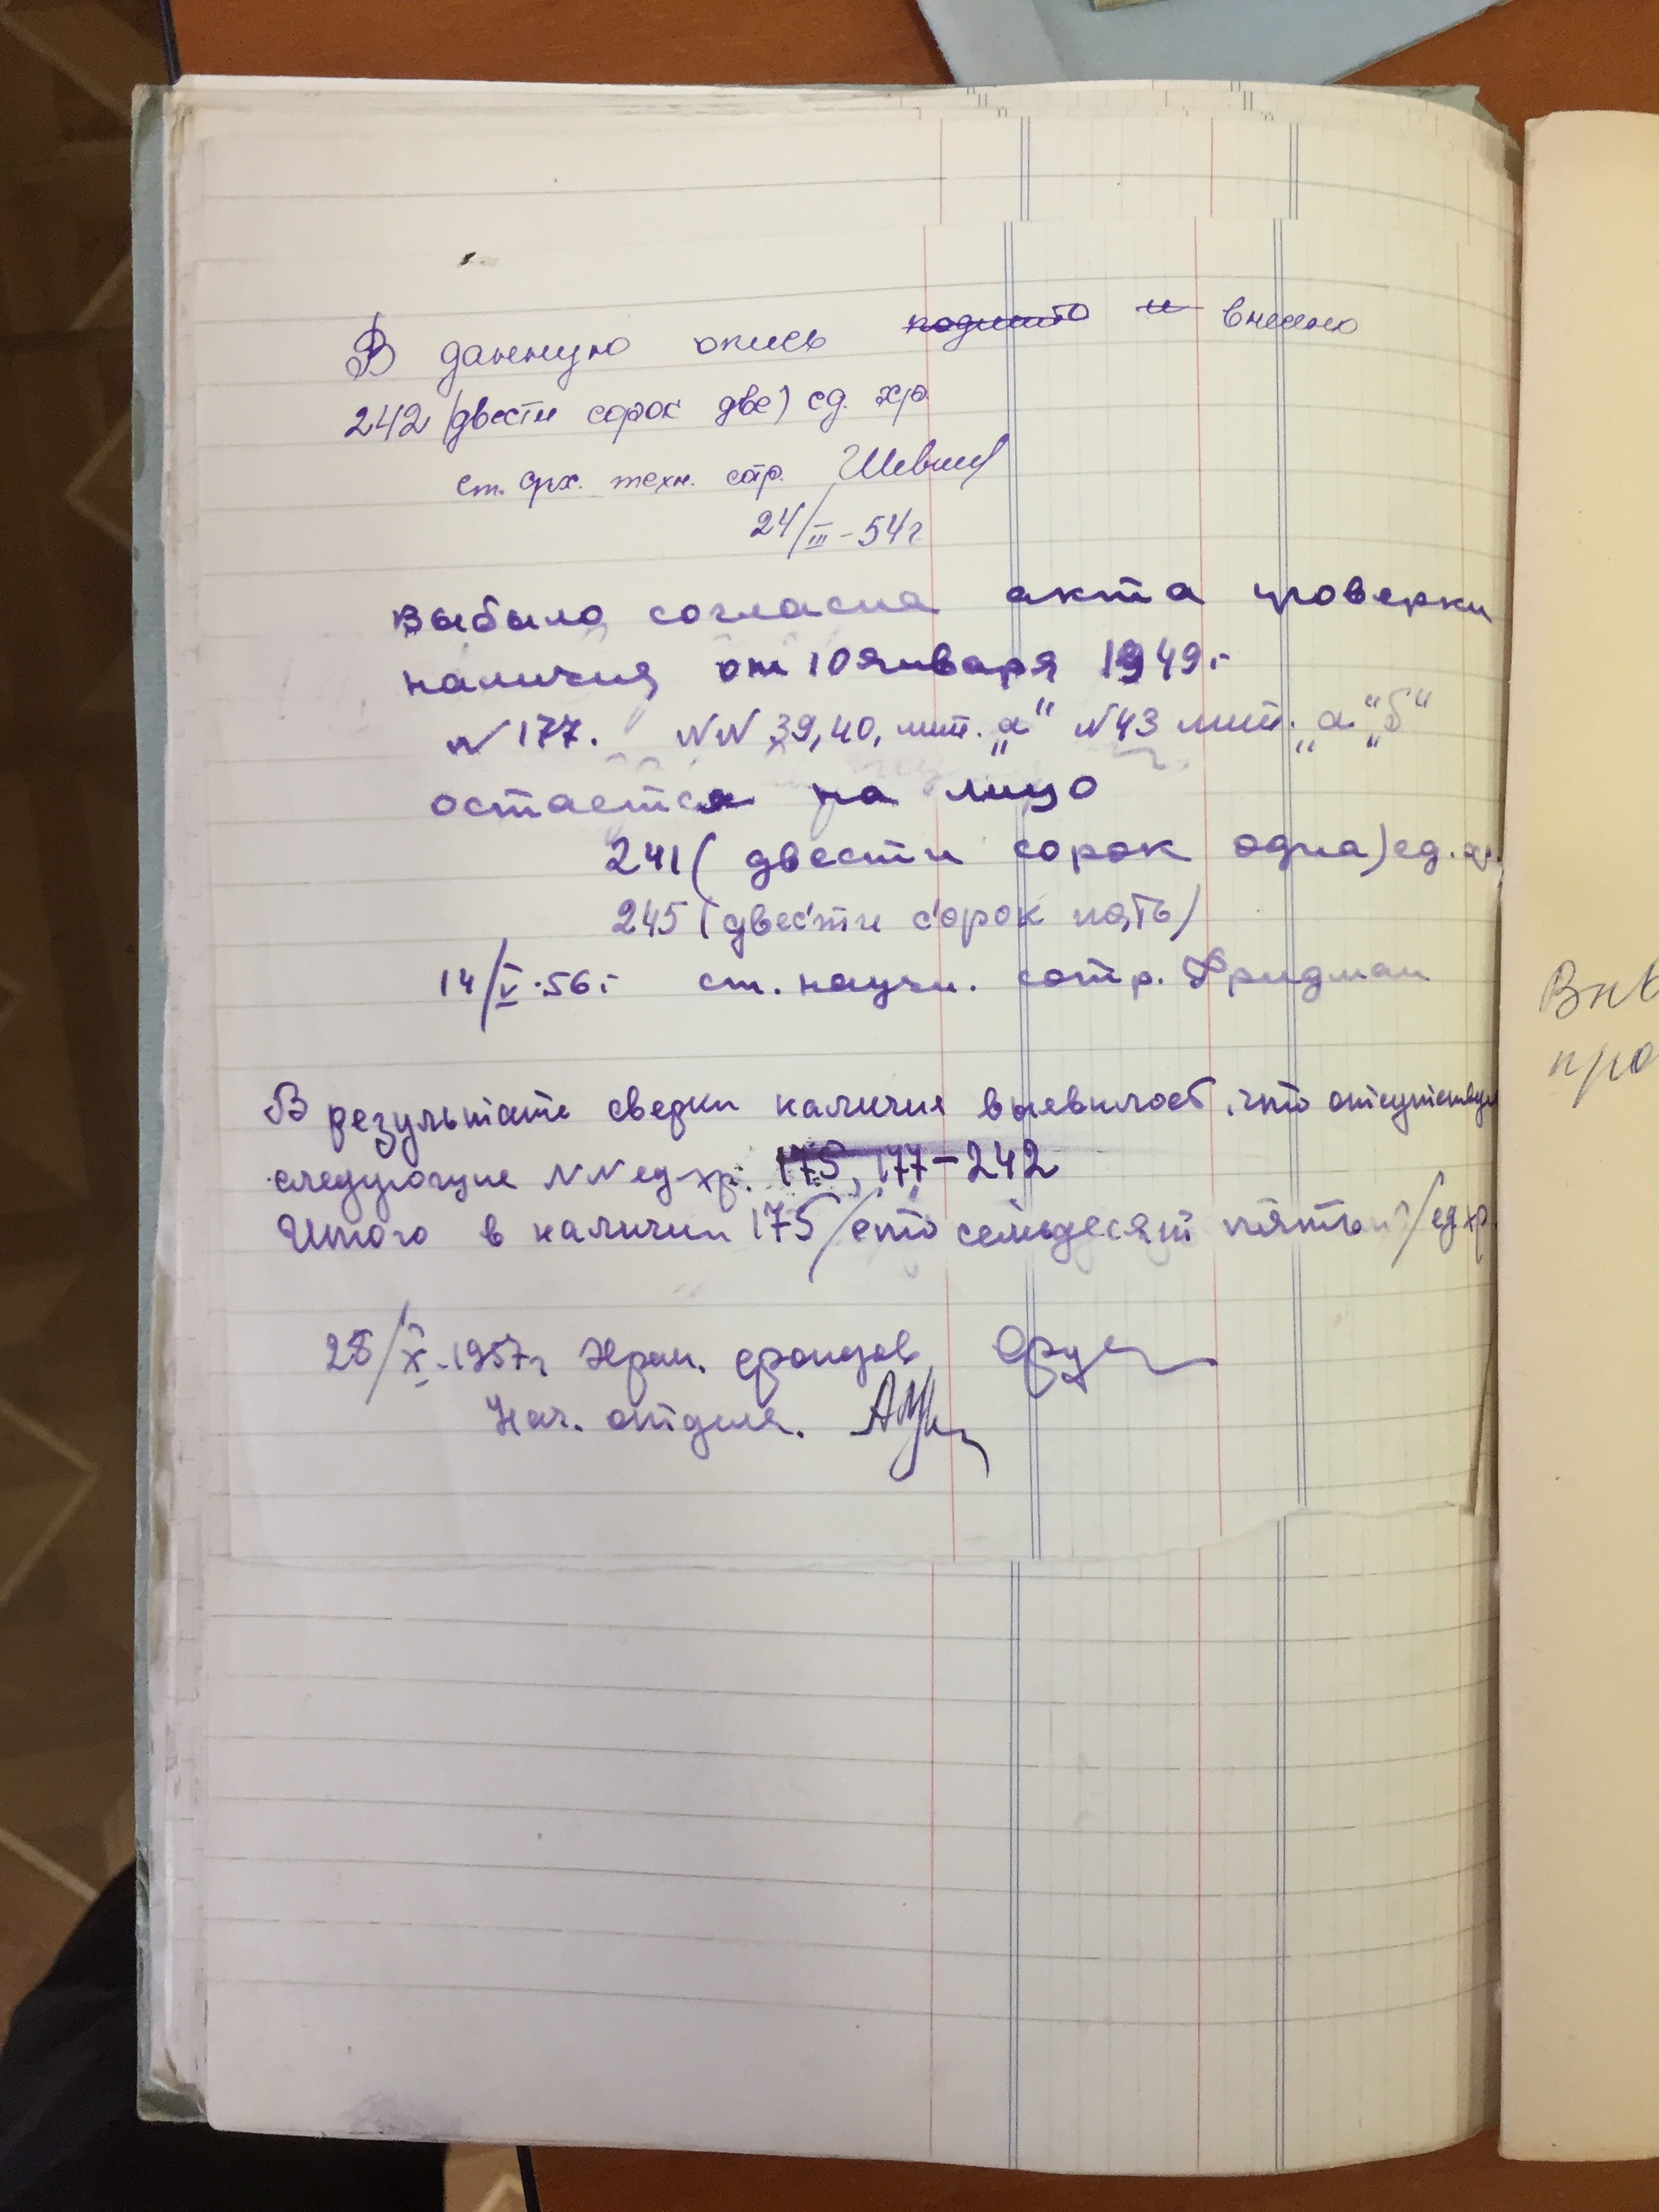 В данную опись подшито и внесено
242 (двести сорок две) ед. хр.
ст. арх. техн. сотр.
24/III-54г
выбыло согласна акта проверки
наличия от 10 января 1949г.
№ 177. №№ 39, 40, лит. „а“ №43 лит. „а“ „б“
остается на лицо
241 (двести сорок одна) ед. хр.
245 (двести сорок пять)
14/V-56г. ст. научн. сотр. Фридман
В результате сверки наличия выявилось, что отсутствуют
следующие №№ ед. хр. 175, 177-242
Итого в наличии 175 /сто семьдесят пять/ ед хр.
28/X-1957г Хран. фондов
Нач. отдела.
Внв
про